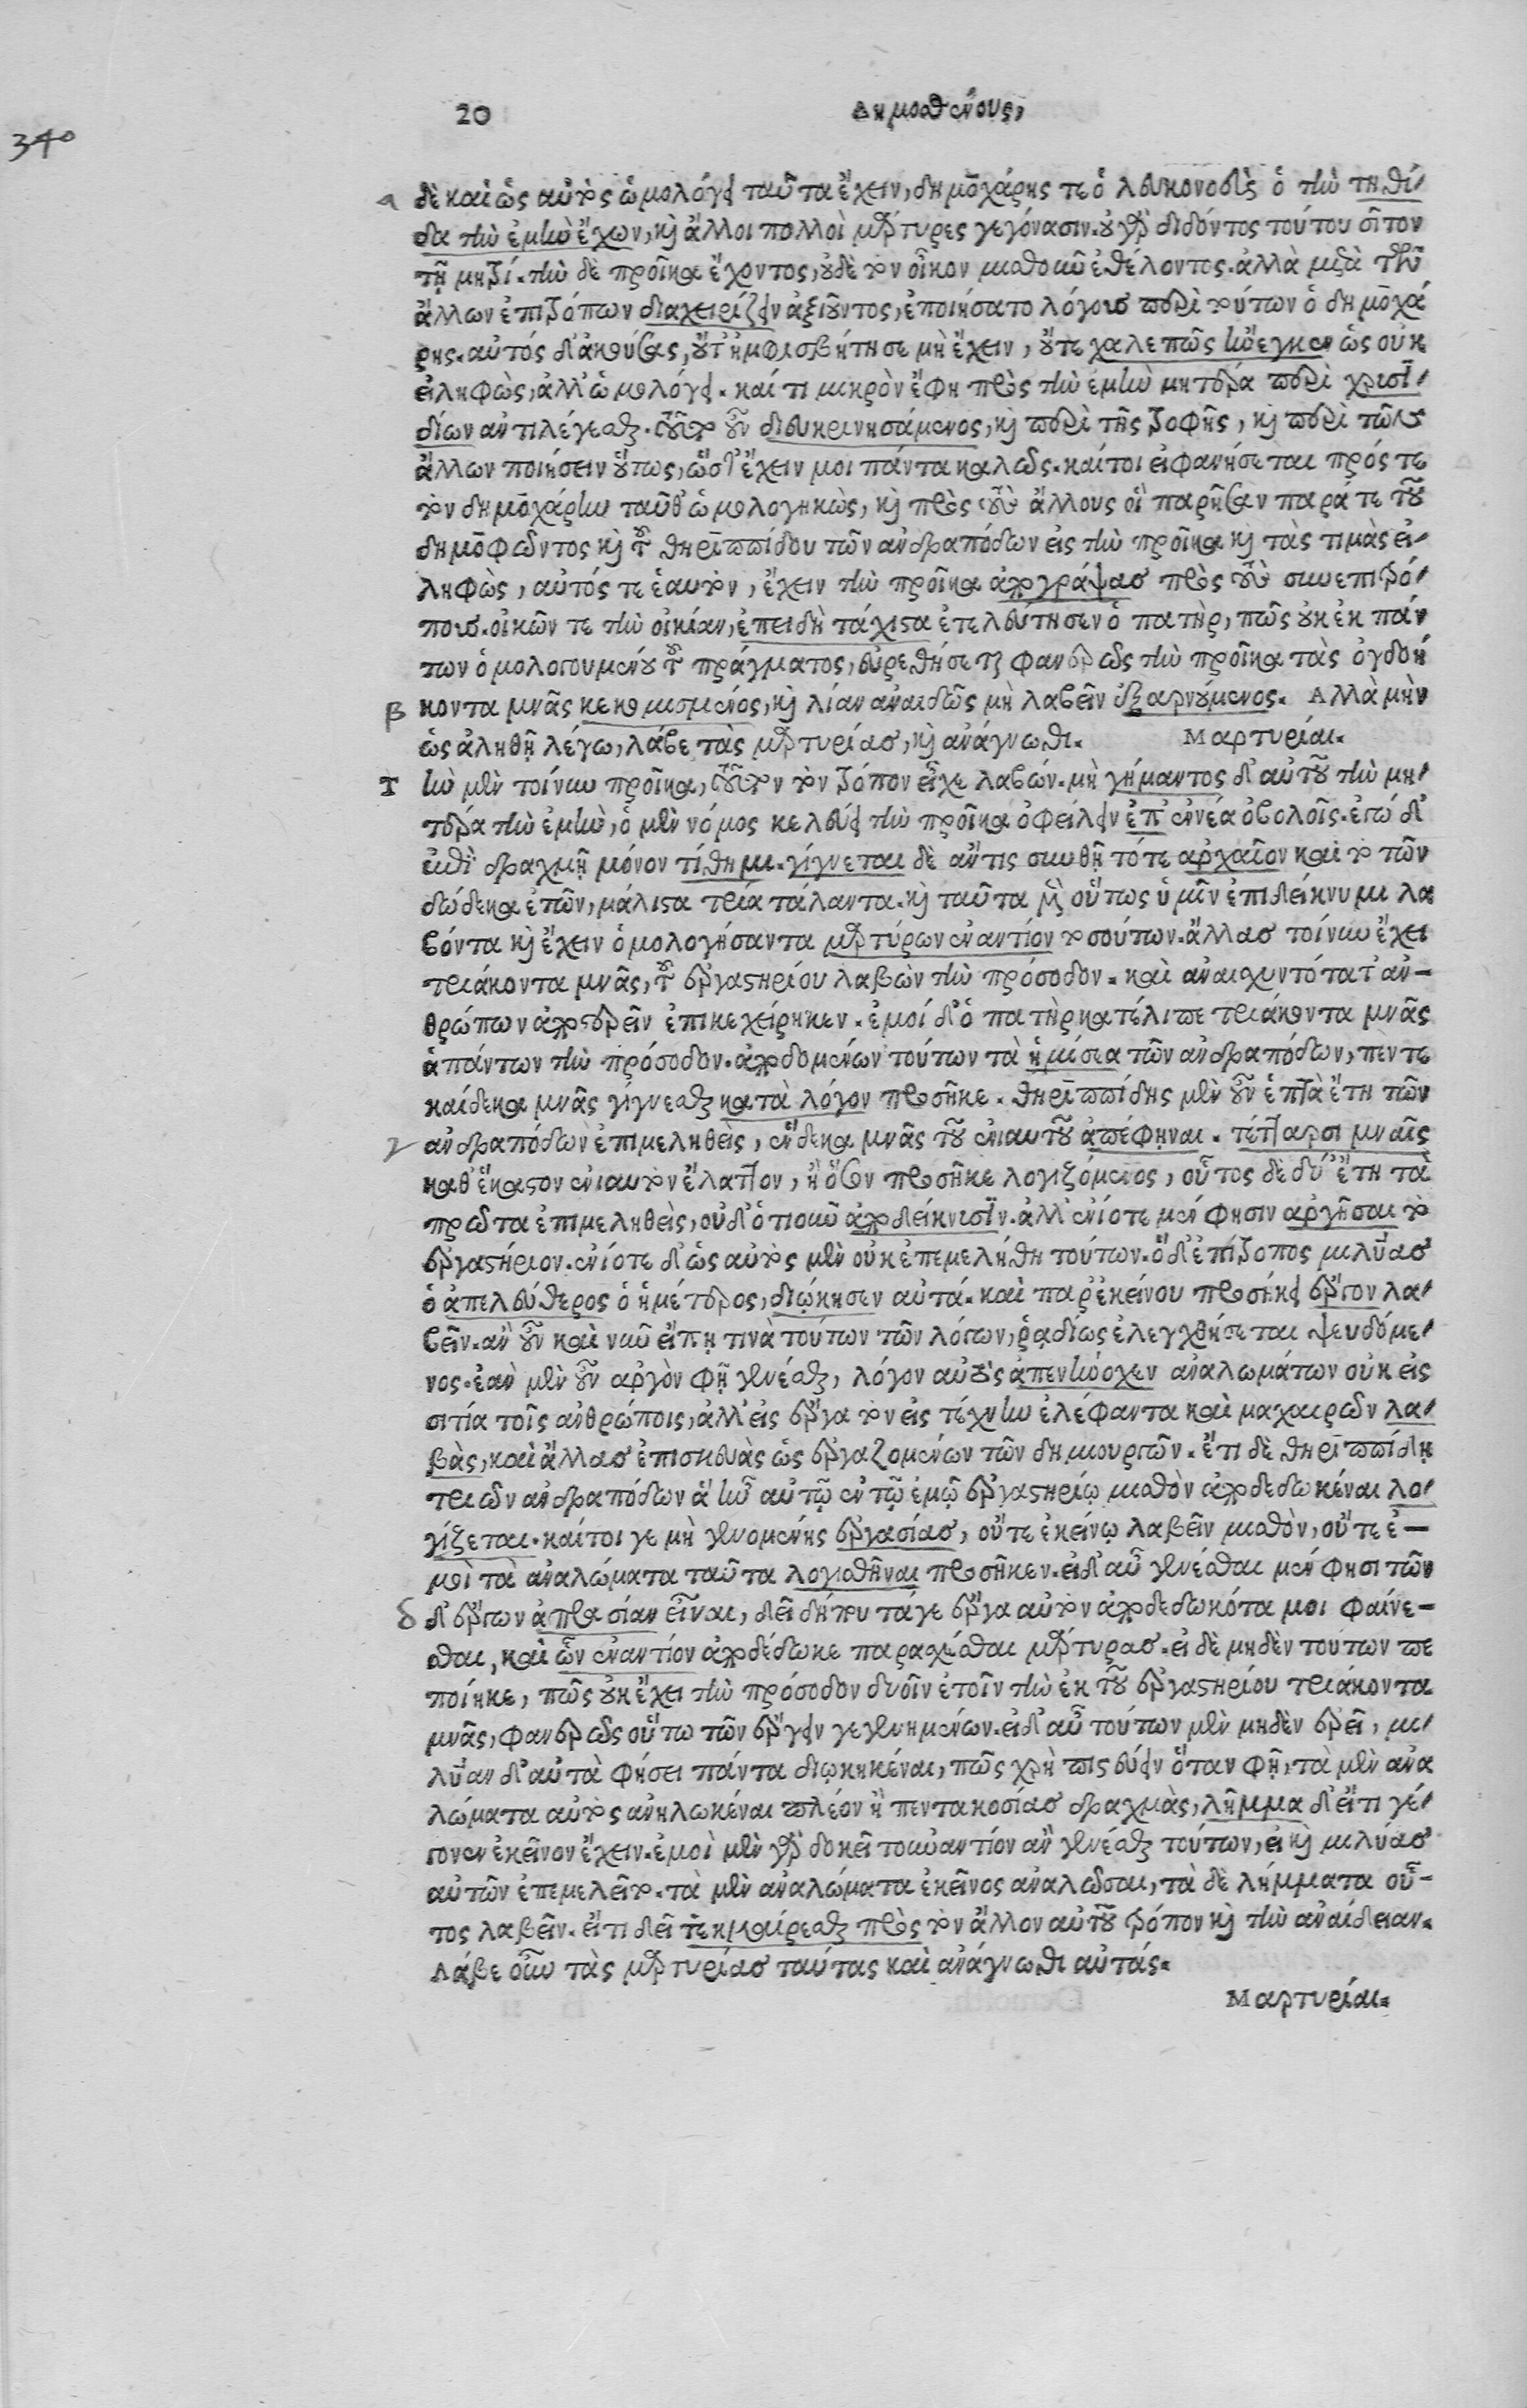 20 Δημοσθένους,
340
α δὲ καὶ ὡς αὐτὸς ὡμολόγει ταῦτα ἔχειν, δημοχάρης τε ὁ λευκονοεὺς ὁ τὴν τηθί-
δα τὴν ἐμὴν ἔχων, καὶ ἄλλοι πολλοὶ μάρτυρες γεγόνασιν. οὐ γὰρ διδόντος τούτου σῖτον
τῇ μητρί. τὴν δὲ προῖκα ἔχοντος, οὐδὲ τὸν οἶκον μισθοῦν ἐθέλοντος. ἀλλὰ μετὰ τῶν
ἄλλων ἐπιτρόπων διαχειρίζειν ἀξιοῦντος, ἐποιήσατο λόγους περὶ τούτων ὁ δημοχά
ρης. αὐτός δ' ἀκούσας, οὔτ' ἠμφισβήτησε μὴ ἔχειν, οὔτε χαλεπῶς ἤνεγκεν ὡς οὐκ
εἰληφὼς, ἀλλ' ὡμολόγει. καί τι μικρὸν ἔφη πρὸς τὴν ἐμὴν μητέρα περὶ χρυσι-
δίων ἀντιλέγεσθαι. τοῦτο οὖν διευκρινησάμενος, καὶ περὶ τῆς τροφῆς, καὶ περὶ τῶν
ἄλλων ποιήσειν οὕτως, ὥστ' ἔχειν μοι πάντα καλῶς. καίτοι εἰ φανήσεται πρός τε
τὸν δημοχάρην ταῦθ' ὡμολογηκὼς, καὶ πρὸς τοὺς ἄλλους οἳ παρῆσαν παρά τε τοῦ
δημοφῶντος καὶ τοῦ θηριππίδου τῶν ἀνδραπόδων εἰς τὴν προῖκα καὶ τὰς τιμὰς εἰ-
ληφὼς, αὐτός τε ἑαυτὸν, ἔχειν τὴν προῖκα ἀπογράψας πρὸς τοὺς συνεπιτρό-
πους. οἰκῶν τε τὴν οἰκίαν, ἐπειδὴ τάχιστα ἐτελεύτησεν ὁ πατὴρ, πῶς οὐκ ἐκ πάν
των ὁμολογουμένου τοῦ πράγματος, εὑρεθήσεται φανερῶς τὴν προῖκα τὰς ὀγδοή
β κοντα μνᾶς κεκομισμένος, καὶ λίαν ἀναιδῶς μὴ λαβεῖν ἐξαρνούμενος. Αλλὰ μὴν
ὡς ἀληθῆ λέγω, λάβε τὰς μαρτυρίας, καὶ ἀνάγνωθι. Μαρτυρίαι.
Τὴν μὲν τοίνυν προῖκα, τοῦτον τὸν τρόπον εἶχε λαβών. μὴ γήμαντος δ' αὐτοῦ τὴν μη-
τέρα τὴν ἐμὴν, ὁ μὲν νόμος κελεύει τὴν προῖκα ὀφείλειν ἐπ' ἐννέα ὀβολοῖς. ἐγώ δ'
ἐπὶ δραχμῇ μόνον τίθημι. γίγνεται δὲ ἄν τις συνθῇ τότε ἀρχαῖον καὶ τὸ τῶν
δώδεκα ἐτῶν, μάλιστα τρία τάλαντα. καὶ ταῦτα μὲν οὕτως ὑμῖν ἐπιδείκνυμι λα
βόντα καὶ ἔχειν ὁμολογήσαντα μαρτύρων ἐναντίον τοσούτων. ἄλλας τοίνυν ἔχει
τριάκοντα μνᾶς, τοῦ ἐργαστηρίου λαβὼν τὴν πρόσοδον. καὶ ἀναισχυντότατ' ἀν-
θρώπων ἀποστερεῖν ἐπικεχείρηκεν. ἐμοί δ' ὁ πατὴρ κατέλιπε τριάκοντα μνᾶς
ἁπάντων τὴν πρόσοδον. ἀποδομένων τούτων τὰ ἡμίσεα τῶν ἀνδραπόδων, πεντε
καίδεκα μνᾶς γίγνεσθαι κατὰ λόγον προσῆκε. θηριππίδης μὲν οὖν ἑπτὰ ἔτη τῶν
γ ἀνδραπόδων ἐπιμεληθεὶς, ἕνδεκα μνᾶς τοῦ ἐνιαυτοῦ ἀπέφηναι. τέτταρσι μναῖς
καθ' ἕκαστον ἐνιαυτὸν ἔλαττον, ἢ ὅσον προσῆκε λογιζόμενος, οὗτος δὲ δύ' ἔτη τὰ
πρῶτα ἐπιμεληθεὶς, οὐδ' ὁτιοῦν ἀποδείκνυσιν. ἀλλ' ἐνίοτε μέν φησιν ἀργῆσαι τὸ
ἐργαστήριον. ἐνίοτε δ' ὡς αὐτὸς μὲν οὐκ ἐπεμελήθη τούτων. ὁ δ' ἐπίτροπος μιλύας
ὁ ἀπελεύθερος ὁ ἡμέτερος, διῴκησεν αὐτά. καὶ παρ' ἐκείνου προσήκει ἔργον λα-
βεῖν. ἂν οὖν καὶ νῦν εἴπῃ τινὰ τούτων τῶν λόγων, ῥᾳδίως ἐλεγχθήσεται ψευδόμε-
νος. ἐὰν μὲν οὖν ἀργὸν φῇ γενέσθαι, λόγον αὐτὸς ἀπενήνοχεν ἀναλωμάτων οὐκ εἰς
σιτία τοῖς ἀνθρώποις, ἀλλ' εἰς ἔργα τὸν εἰς τέχνην ἐλέφαντα καὶ μαχαιρῶν λα-
βὰς, καὶ ἄλλας ἐπισκευὰς ὡς ἐργαζομένων τῶν δημιουργῶν. ἔτι δὲ θηριππίδῃ
τριῶν ἀνδραπόδων ἃ ἦν αὐτῷ ἐν τῷ ἐμῷ ἐργαστηρίῳ μισθὸν ἀποδεδωκέναι λο-
γίζεται. καίτοι γε μὴ γενομένης ἐργασίας, οὔτε ἐκείνῳ λαβεῖν μισθὸν, οὔτε ἐ-
μοὶ τὰ ἀναλώματα ταῦτα λογισθῆναι προσῆκεν. εἰ δ' αὖ γενέσθαι μέν φησι τῶν
δ δ' ἔργων ἀπρασίαν εἶναι, δεῖ δήπου τά γε ἔργα αὐτὸν ἀποδεδωκότα μοι φαίνε-
σθαι, καὶ ὧν ἐναντίον ἀποδέδωκε παρασχέσθαι μάρτυρας. εἰ δὲ μηδὲν τούτων πε
ποίηκε, πῶς οὐκ ἔχει τὴν πρόσοδον δυοῖν ἐτοῖν τὴν ἐκ τοῦ ἐργαστηρίου τριάκοντα
μνᾶς, φανερῶς οὕτω τῶν ἔργων γεγενημένων. εἰ δ' αὖ τούτων μὲν μηδὲν ἐρεῖ, μι-
λύαν δ' αὐτὰ φήσει πάντα διῳκηκέναι, πῶς χρὴ πιστεύειν ὅταν φῇ, τὰ μὲν ἀνα
λώματα αὐτὸς ἀνηλωκέναι πλέον ἢ πεντακοσίας δραχμὰς, λῆμμα δ' εἴ τι γέ-
γονεν ἐκεῖνον ἔχειν. ἐμοὶ μὲν γὰρ δοκεῖ τοὐναντίον ἂν γενέσθαι τούτων, εἰ καὶ μιλύας
αὐτῶν ἐπεμελεῖτο. τὰ μὲν ἀναλώματα ἐκεῖνος ἀναλῶσαι, τὰ δὲ λήμματα οὗ-
τος λαβεῖν. εἴ τι δεῖ τεκμαίρεσθαι πρὸς τὸν ἄλλον αὐτοῦ τρόπον καὶ τὴν ἀναίδειαν.
Λάβε οὖν τὰς μαρτυρίας ταύτας καὶ ἀνάγνωθι αὐτάς.
Μαρτυρίαι.